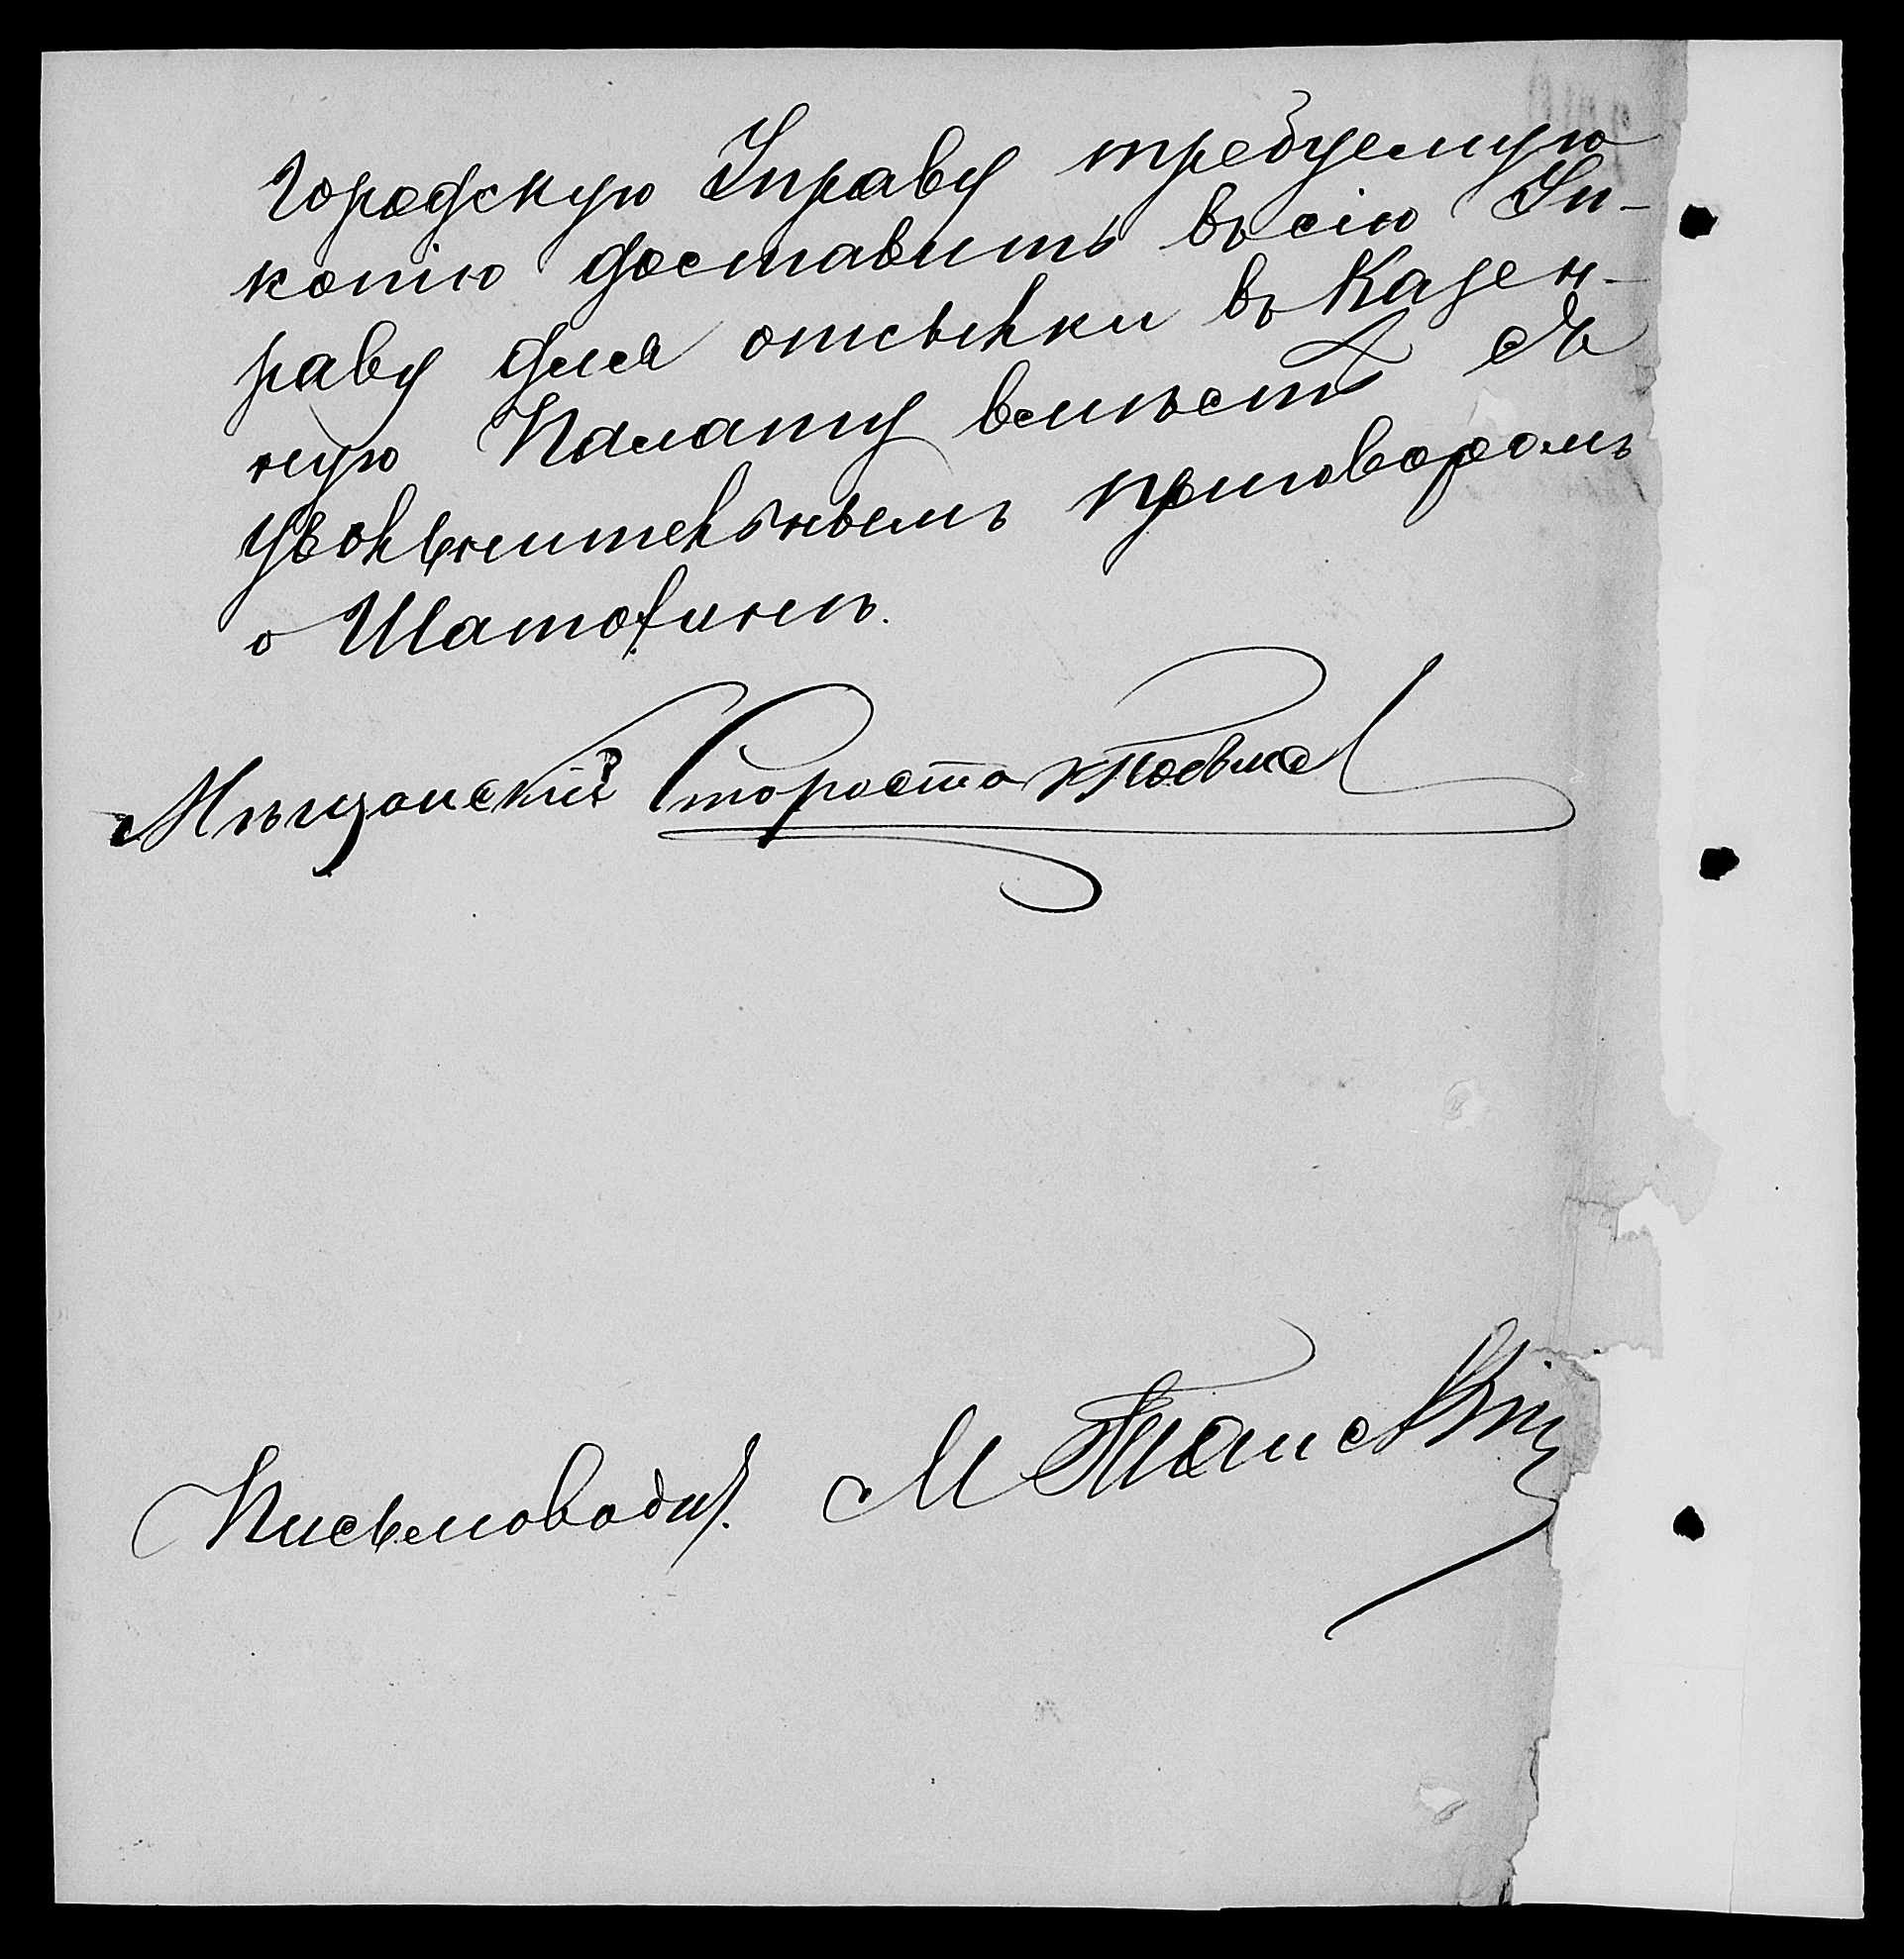 Городскую Управу требуемую
копію доставить въ сію Уп-
раву для отсылки въ Казен-
ную Палату вмѣстѣ съ
увольнительнымъ приговоромъ
о Шатохинѣ.
Мѣщанскій Староста
Письмоводит. М